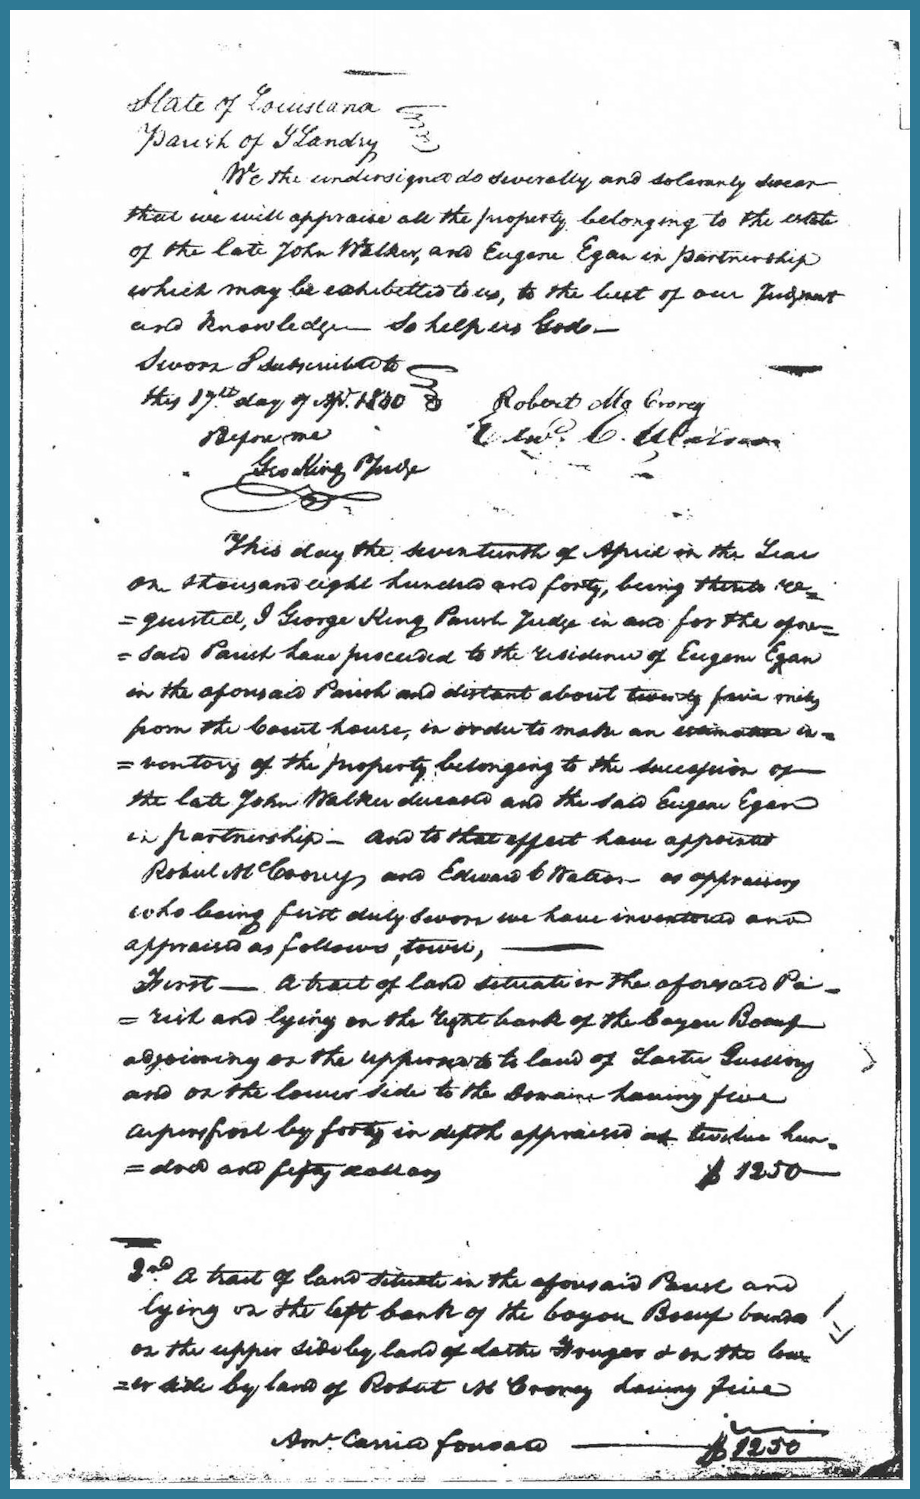 State of Louisiana
Parish of St Landry
We the undersigned do severally and solemnly swear
that we will appraise all the property belonging to the estate
of the late John Walker, and Eugene Egan in partnership
which may be exhibetted to us, to the best of our Judgment
and Knowledge — So help us God —
Sworn & subscribed to
this 17th day of Apl. 1840
Robert Mc Crorey
Edwd. C. Watson
Before me
Geo King P Judge
This day the seventeenth of April in the Year
one thousand eight hundred and forty, being thereto re=
=quested, I George King Parish Judge in and for the afore=
=said Parish have proceeded to the residence of Eugene Egan
in the aforesaid Parish and distant about twenty five miles
from the Court house, in order to make an in=
=ventory of the property belonging to the succession of
the late John Walker deceased and the said Eugene Egan
in partnership — and to that effect have appointed
Robert McCrorey and Edward C Watson — as appraisers
who being first duly sworn we have inventoried and
appraised as follows, towit, ———
First — A tract of land situate in the aforesaid Pa=
=rish and lying on the right bank of the bayou Boeuf
adjoining on the upper side to land of
and on the lower side to the Domaine having five
arpens front by forty in depth appraised at twelve hun=
=dred and fifty dollars $1250
2nd A tract of land situate in the aforesaid Parish and
lying on the left bank of the bayou Boeuf bounded
on the upper side by land of & on the low=
=er side by land of Robert McCrorey having five
Amt. Carried forward ——— $1250